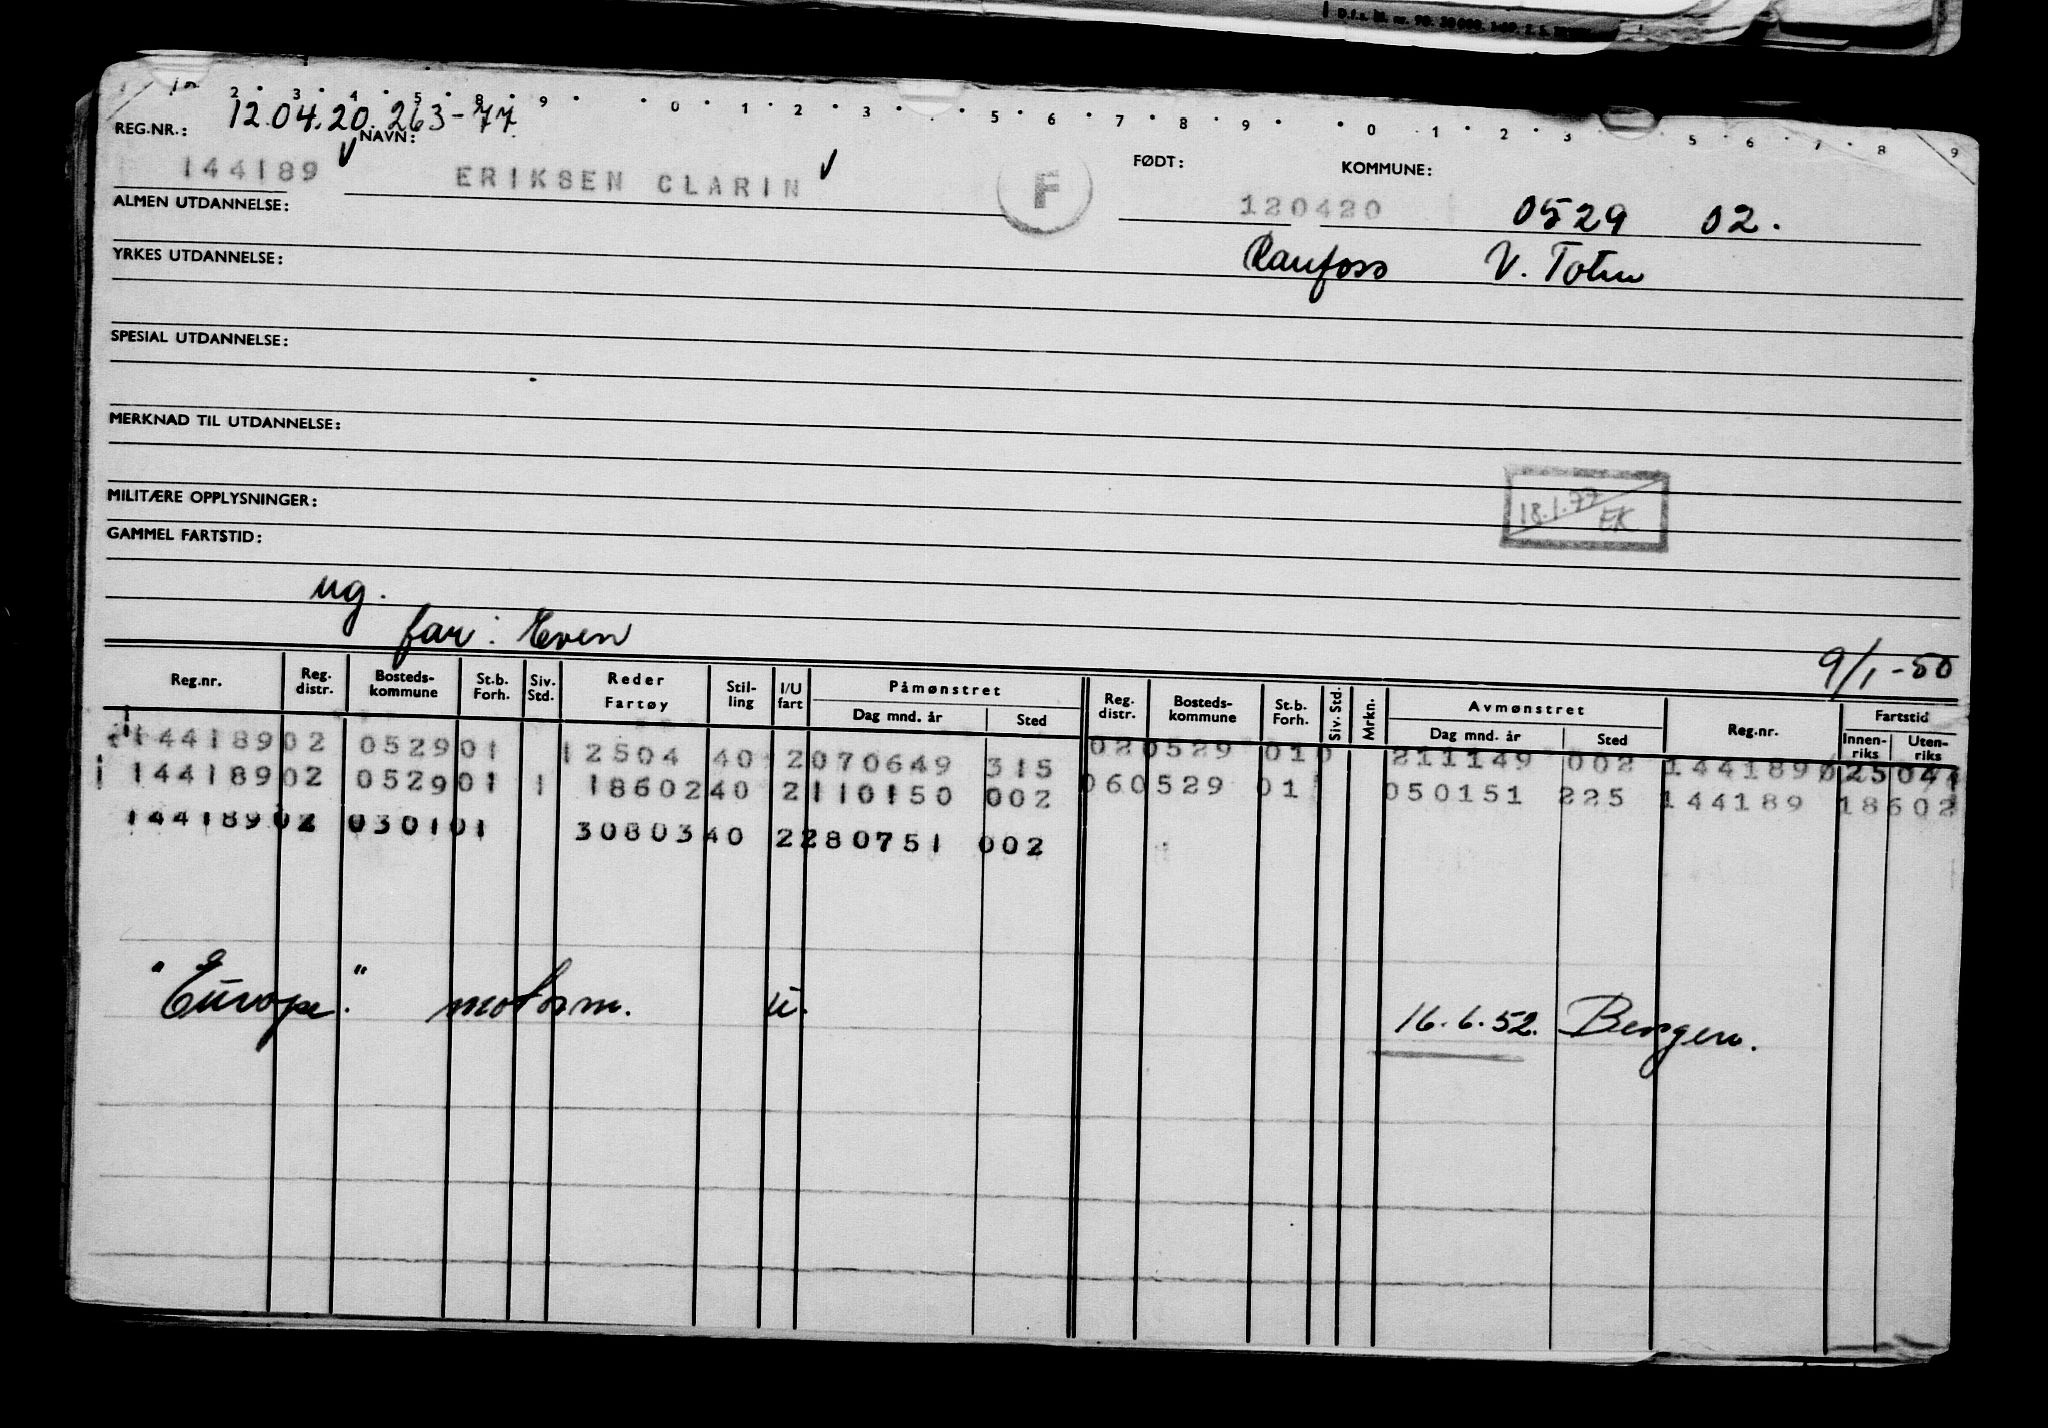 D.f.s. bl. nr. 90. 30 000. 1-49.
2 3 4 5 8 9 0 1 2 3 5 6 7 8 9 0 1 2 3 5 6 7 8 9
12.04.20.263-77
REG.NR.: NAVN: FØDT: KOMMUNE:
144189 ERIKSEN CLARIN F 120420 0529 02.
ALMEN UTDANNELSE:
Raufoss V. Toten
YRKES UTDANNELSE:
SPESIAL UTDANNELSE:
MERKNAD TIL UTDANNELSE:
MILITÆRE OPPLYSNINGER:
18.1.77 EK
GAMMEL FARTSTID:
ug.
far: Even
9/1-50
Reg.nr. Reg. distr. Bosteds-kommune St.b. Forh. Siv. Std. Reder Fartøy Stil-ling I/U fart Påmønstret Dag mnd. år Sted Reg. distr. Bosteds-kommune St.b. Forh. Siv. Std. Mrkn. Avmønstret Dag mnd. år Sted Reg.nr. Fartstid Innen-riks Uten-riks
144189 02 0529 01 12504 40 2 070649 315 02 0529 01 0 211149 002 144189
144189 02 0529 01 1 18602 40 2 110150 002 06 0529 01 050151 225 144189 18602
144189 02 0301 01 30803 40 2 280751 002
"Europe." motorm. u. 16.6.52. Bergen.